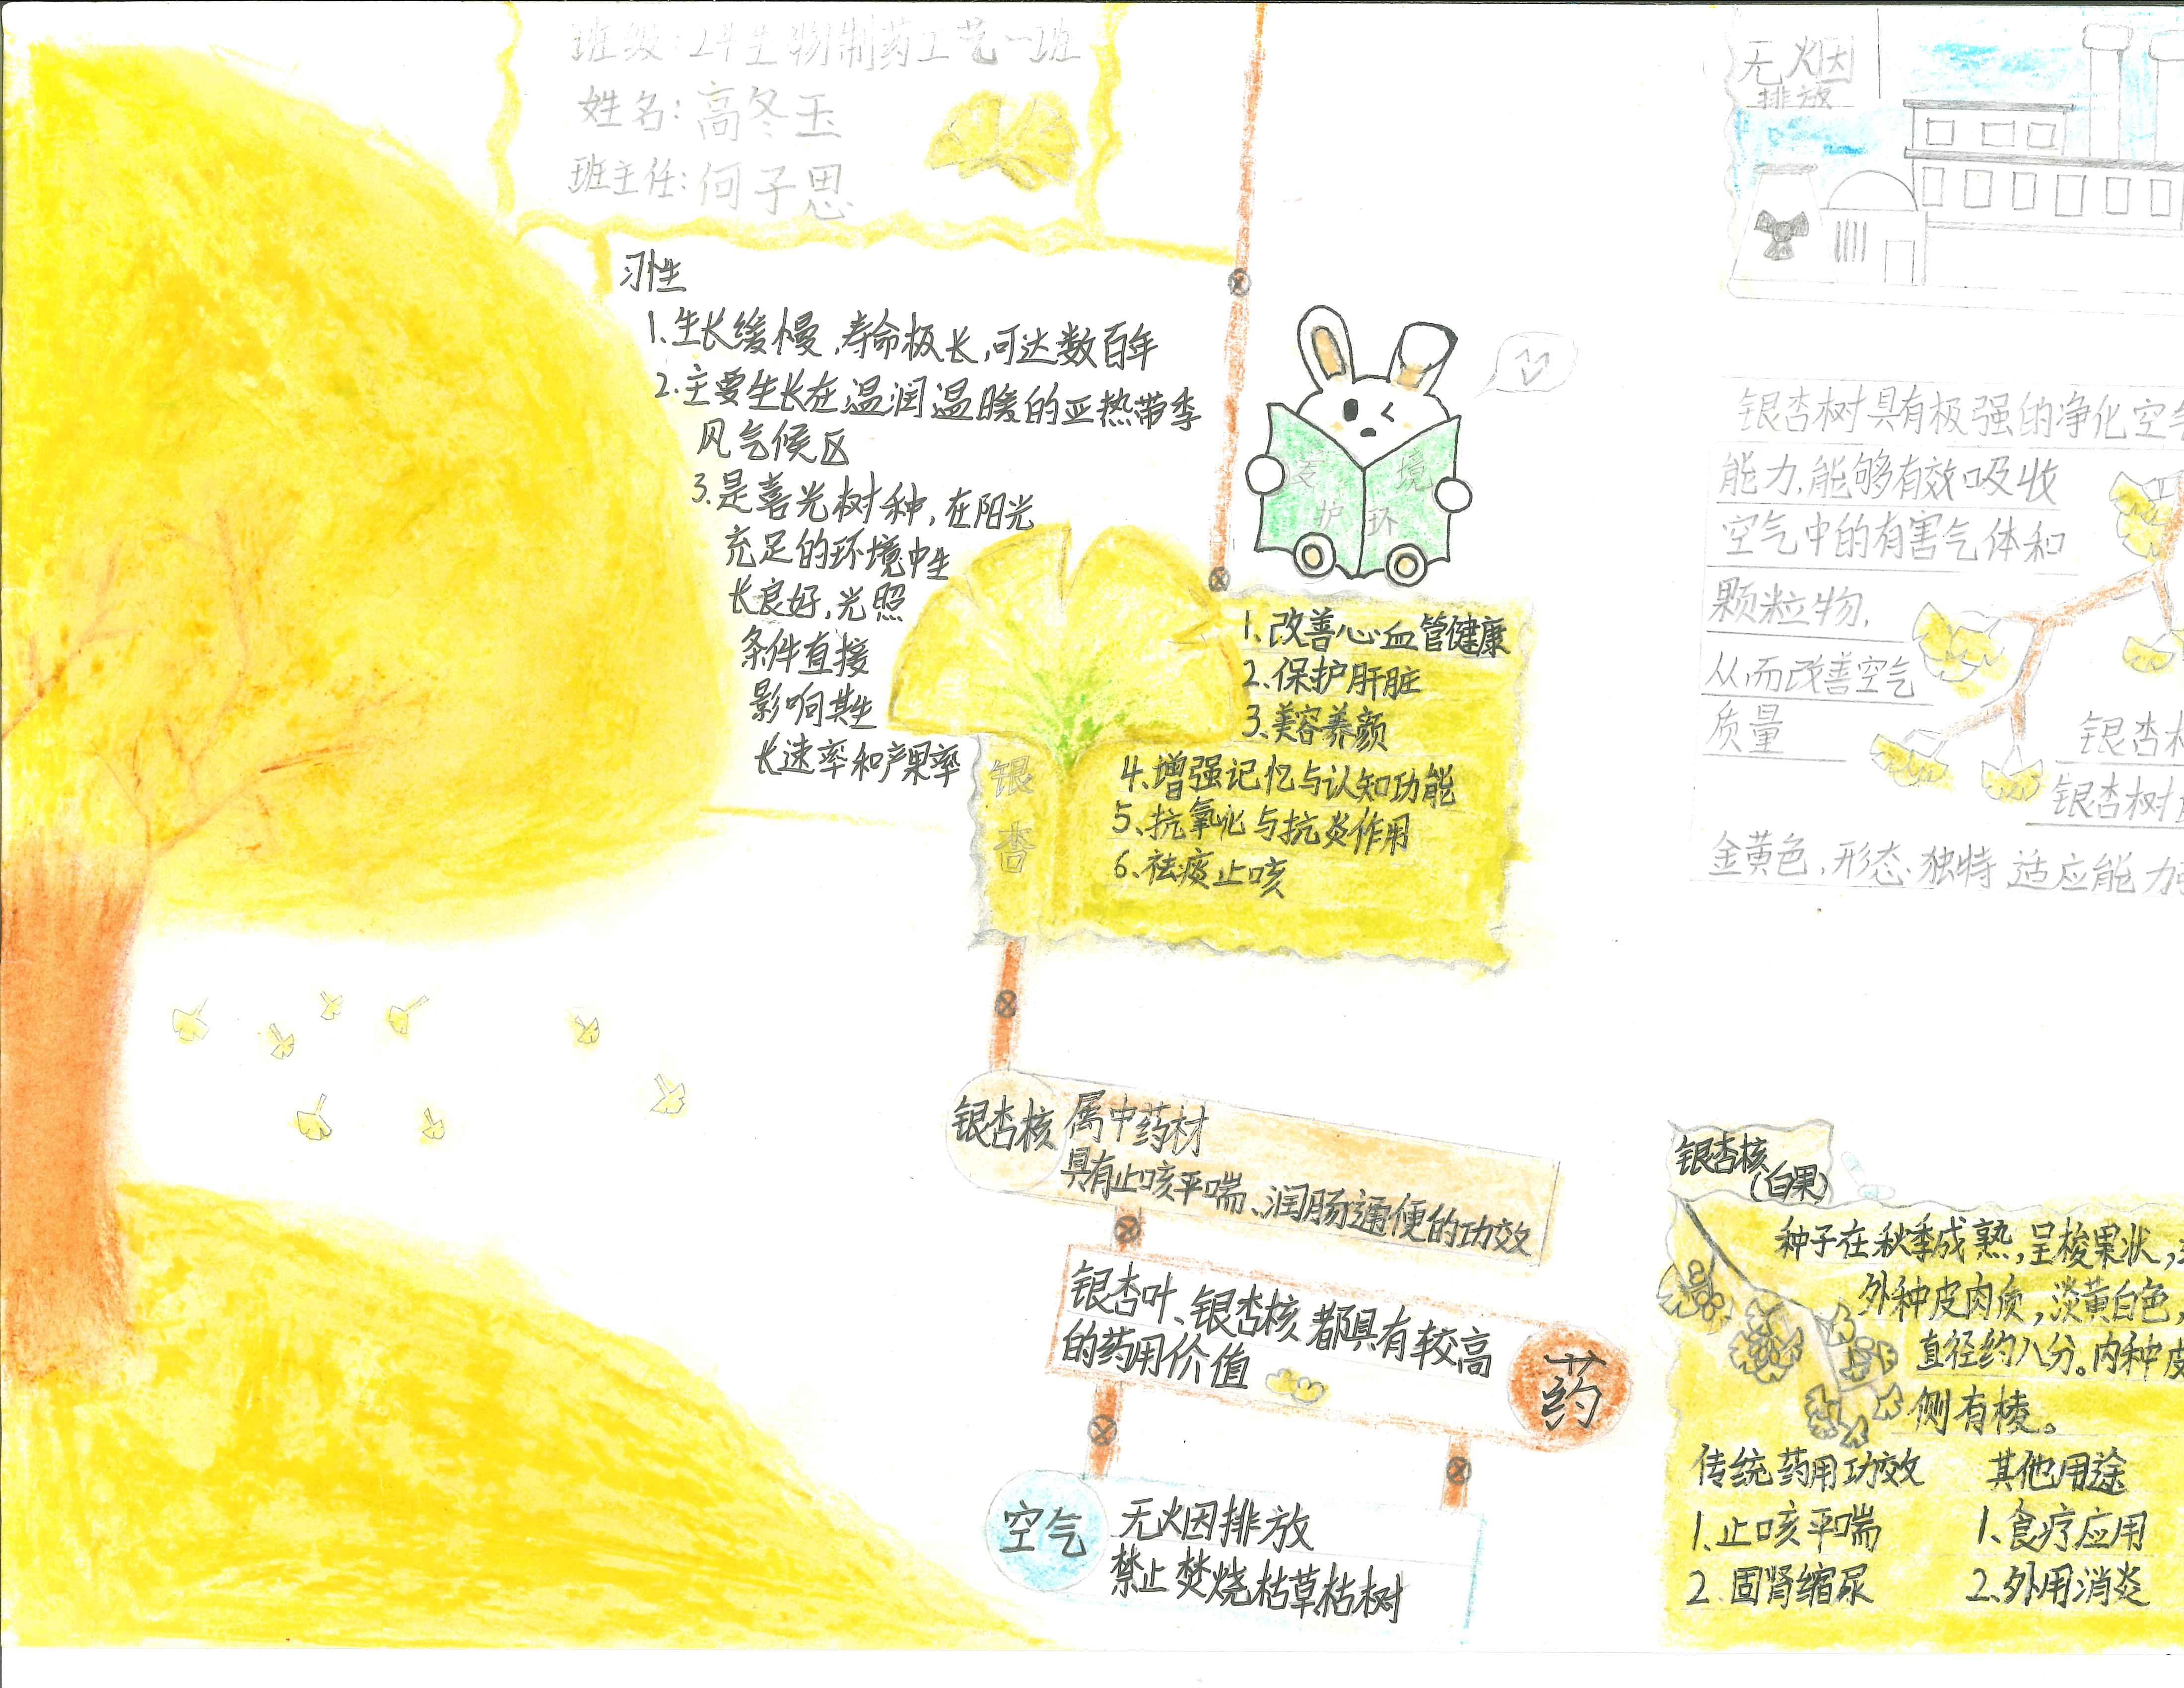 班级:24生物制药工艺一班
姓名:高冬玉
班主任:何子思
习性
1.生长缓慢,寿命极长,可达数百年
2.主要生长在温润温暖的亚热带季
风气候区
3.是喜光树种,在阳光
充足的环境中生
长良好,光照
条件直接
影响其生
长速率和产果率
爱 境
护 环
银
杏
1、改善心血管健康
2、保护肝脏
3、美容养颜
4、增强记忆与认知功能
5、抗氧化与抗炎作用
6、祛痰止咳
银杏核
属中药材
具有止咳平喘、润肠通便的功效
银杏叶、银杏核都具有较高
的药用价值
药
空气
无烟排放
禁止焚烧枯草枯树
无烟
排放
银杏树具有极强的净化空气
能力,能够有效吸收
空气中的有害气体和
颗粒物,
从而改善空气
质量
银杏
银杏树
金黄色,形态独特 适应能力
银杏核
(白果)
种子在秋季成熟,呈梭果状,
外种皮肉质,淡黄白色,
直径约八分。内种皮
侧有棱。
传统药用功效
1、止咳平喘
2.固肾缩尿
其他用途
1、食疗应用
2、外用消炎